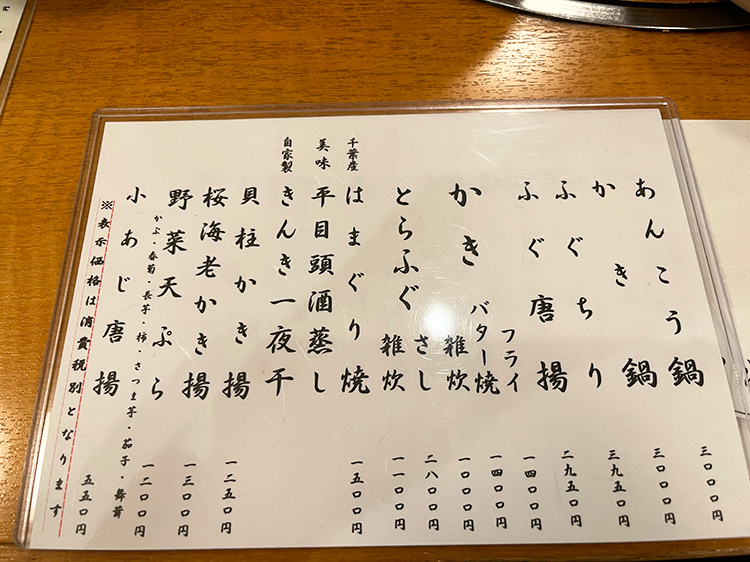 あんこう鍋 三〇〇〇円
かき鍋 三〇〇〇円
ふぐちり 三九五〇円
ふぐ唐揚 二九五〇円
かき フライ 一四〇〇円
バター焼 一四〇〇円
雑炊 一〇〇〇円
とらふぐ さし 二八〇〇円
雑炊 一一〇〇円
千葉産 はまぐり焼 一五〇〇円
美味 平目頭酒蒸し
自家製 きんき一夜干
貝柱かき揚 一二五〇円
桜海老かき揚 一三〇〇円
野菜天ぷら 一二〇〇円
かぶ・春菊・長芋・柿・さつま芋・茄子・舞茸
小あじ唐揚 五五〇円
※表示価格は消費税別となります